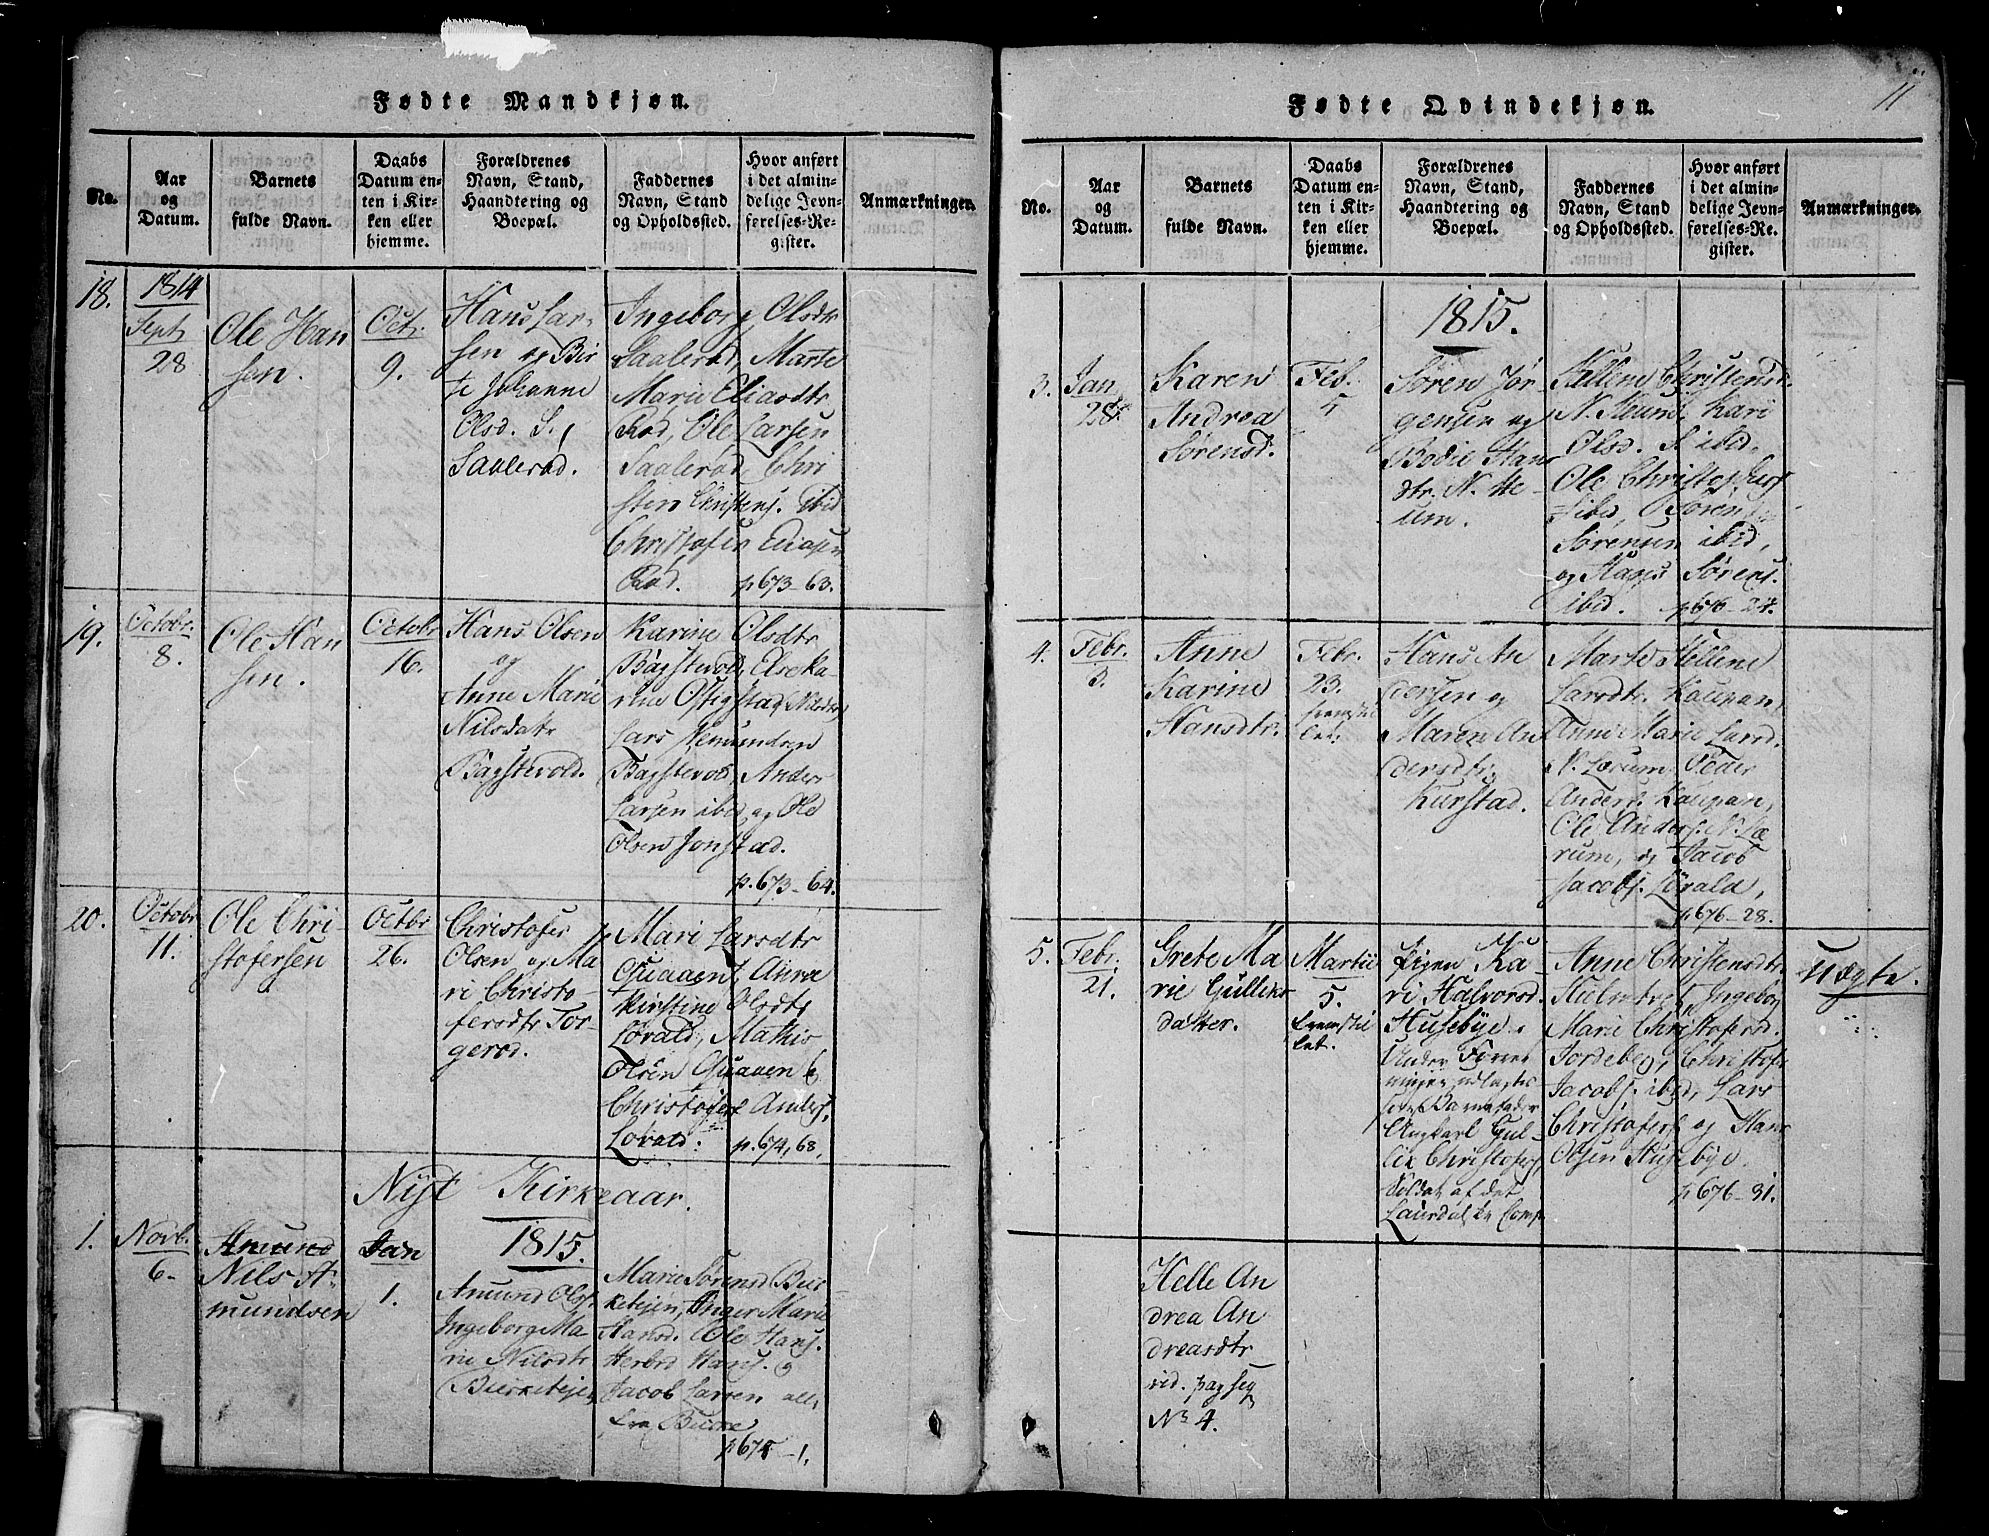 Fødte Mandkjøn.
No.
Aar
og
Datum.
Barnets
fulde Navn.
Daabs
Datum en-
ten i Kir-
ken eller
hjemme.
Forældrenes
Navn, Stand,
Haandtering og
Boepæl.
Faddernes
Navn, Stand
og Opholdssted.
Hvor anført
i det almin-
delige Jevn-
førelses-Re-
gister.
Anmærkninger.
18.
1814
Sept
28
Ole Han
sen.
Oct.
9.
Hans Lar-
sen og Bir
te Johanne
Olsd. S.
Saalerød.
Ingeborg Olsdtr
Saalerød, Marte
Marie Eliasdtr
Rød, Ole Larsen
Saalerød, Chri
sten Christens. ibid
Christofer Eliasen
Rød. p673-63.
19.
Octobr.
8.
Ole Han
sen.
Octobr
16.
Hans Olsen
og
Anne Marie
Nilsdatr
Bagstevold.
Karine Olsdtr
Bagstevold, Else Ka-
rine Ostigstad (Nilsdtr)
Lars Amundsen
Bagstevold, Anders
Larsen ibid, og Ole
Olsen Jonstad.
p.673-64.
20.
Octobr
11.
Ole Chri-
stofersen
Octbr
26.
Christofer
Olsen og Ma
ri Christo-
fersdtr Tor-
gerød.
Mari Larsdtr
Quaaen, Anne
Kirstine Olsdtr
Løvald, Mathis
Olsen Quaaen &
Christofer Anders.
Løvald. p.674,68.
Nyt Kirkeaar.
1815.
1.
Novb.
6.
Amund
Nils A-
mundsen
Jan
1.
Amund Ols.
Ingeborg Ma-
rie Nilsdtr
Marie Sørensd
Inger Marie
Hansd. Ole Hans.
Hans.
Jacob Larsen alle
fra
p675-1.
11
Fødte Qvindekjøn.
No.
Aar
og
Datum.
Barnets
fulde Navn.
Daabs
Datum en-
ten i Kir-
ken eller
hjemme.
Forældrenes
Navn, Stand,
Haandtering og
Boepæl.
Faddernes
Navn, Stand
og Opholdssted.
Hvor anført
i det almin-
delige Jevn-
førelses-Re-
gister.
Anmærkninger.
1815.
3.
Jan.
28.
Karen
Andrea
Sørensd.
Feb.
5
Søren Jør-
gensen og
Bodil Hans
dtr. N. He-
um.
Hellene Christensd.
N. Heum, Kari
Olsd. S ibid,
Ole Christophers
ibid, Søren
Sørensen ibid,
og Hans Sørens.
ibid. p676-24.
4.
Febr.
3.
Anne
Karine
Hansdtr.
Febr.
23.
fremstil
let.
Hans An
dersen og
Maren An
dersdtr
Kurstad.
Marte Hellene
Larsdtr. Kaupan,
Anne Marie Larsd.
N. Lærum, Peder
Anders. Kaupan,
Ole Anders. N. Læ
rum, og Jacob
Jacobs. Løvald,
p676-28.
5.
Febr.
21.
Grete Ma
rie Gulliks
datter.
Martii
5.
fremstil
let.
Pigen Ka
ri Halvorsd.
Husebye.
Ungkarl Gul-
lix Christofers.
Soldat af det
Laurdalske Comp.
Anne Christensdtr.
Holmtret, Ingeborg
Marie Christofersd.
Jordeberg, Christofer
Jacobs. ibid, Lars
Christofers og Hans
Olsen Husebye.
p676-31.
Uægte.
Helle An
drea An
dreasdtr
vid. pag seq
No 4.